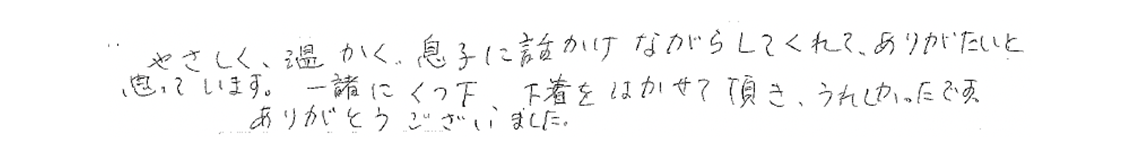 やさしく、温かく、息子に話かけながらしてくれて、ありがたいと
思っています。一諸にくつ下、下着をはかせて頂き、うれしかったです。
ありがとうございました。